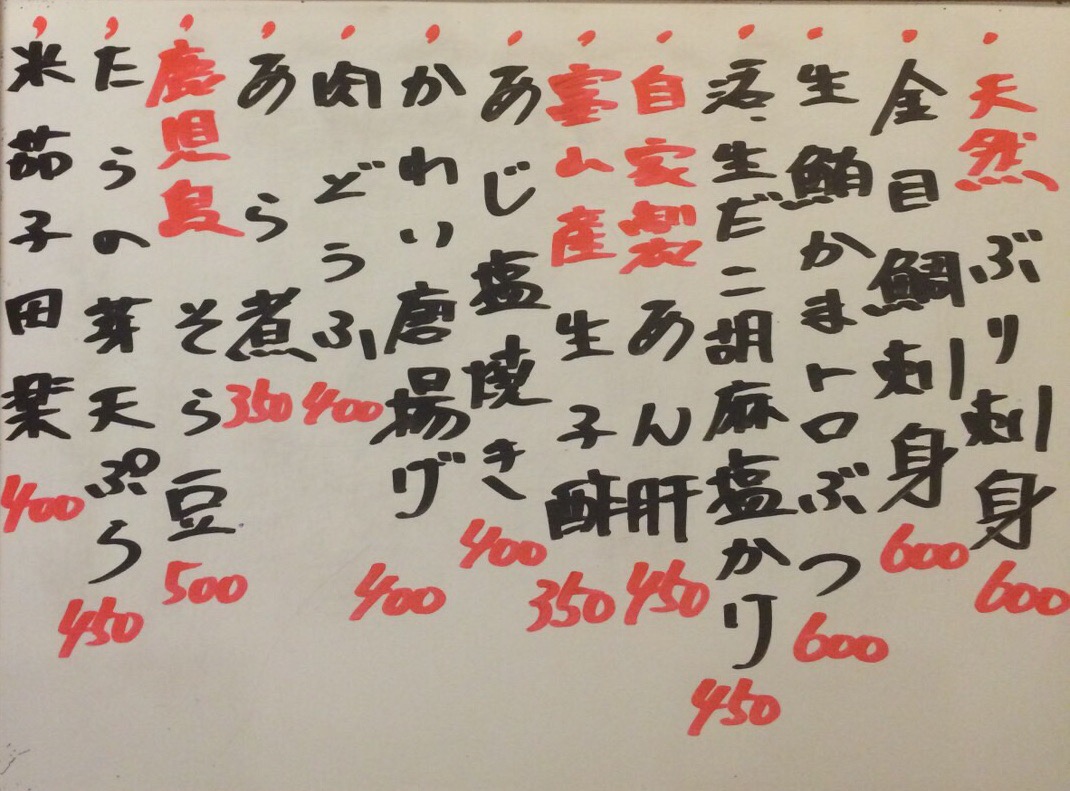 天然ぶり刺身 600
金目鯛刺身 600
生鮪かまトロぶつ 600
活、生だこ胡麻塩かり 450
自家製あん肝 450
富山産生子酢 350
あじ塩焼き 400
かわい唐揚げ 400
肉どうふ 400
あら煮 350
鹿児島そら豆 500
たらの芽天ぷら 450
米茄子田楽 400